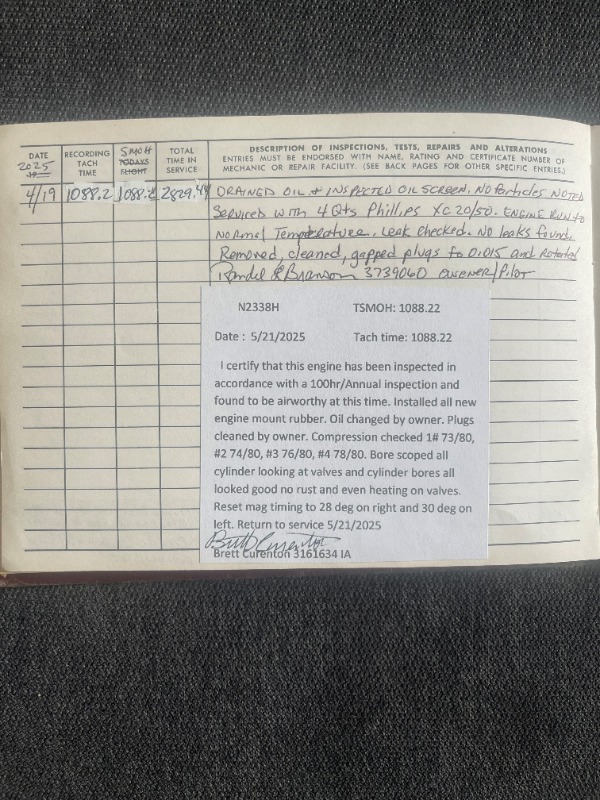 DATE
2025
19
RECORDING
TACH
TIME
SMOH
TODAYS
FLIGHT
TOTAL
TIME IN
SERVICE
DESCRIPTION OF INSPECTIONS, TESTS, REPAIRS AND ALTERATIONS
ENTRIES MUST BE ENDORSED WITH NAME, RATING AND CERTIFICATE NUMBER OF
MECHANIC OR REPAIR FACILITY. (SEE BACK PAGES FOR OTHER SPECIFIC ENTRIES.)
4/19 1088.2 1088.2 2829.44 DRAINED OIL & INSPECTED OIL SCREEN, NO PARTICLES NOTED
Serviced with 4 Qts Phillips XC 20/50. ENGINE RUN to
NORMAL Temperature. Leak checked. NO leaks found.
Removed, cleaned, gapped plugs to 0.015 and Rotated
Branson 3739060 OWENER/Pilot
N2338H TSMOH: 1088.22
Date : 5/21/2025 Tach time: 1088.22
I certify that this engine has been inspected in
accordance with a 100hr/Annual inspection and
found to be airworthy at this time. Installed all new
engine mount rubber. Oil changed by owner. Plugs
cleaned by owner. Compression checked 1# 73/80,
#2 74/80, #3 76/80, #4 78/80. Bore scoped all
cylinder looking at valves and cylinder bores all
looked good no rust and even heating on valves.
Reset mag timing to 28 deg on right and 30 deg on
left. Return to service 5/21/2025
Brett Curenton
Brett Curenton 3161634 IA